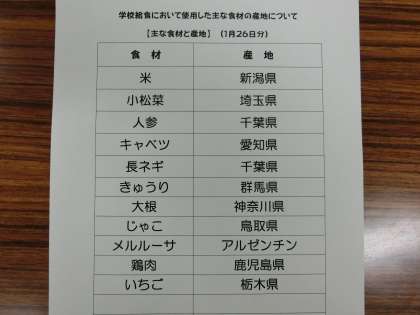 学校給食において使用した主な食材の産地について
【主な食材と産地】 (1月26日分)
食材 産地
米 新潟県
小松菜 埼玉県
人参 千葉県
キャベツ 愛知県
長ネギ 千葉県
きゅうり 群馬県
大根 神奈川県
じゃこ 鳥取県
メルルーサ アルゼンチン
鶏肉 鹿児島県
いちご 栃木県